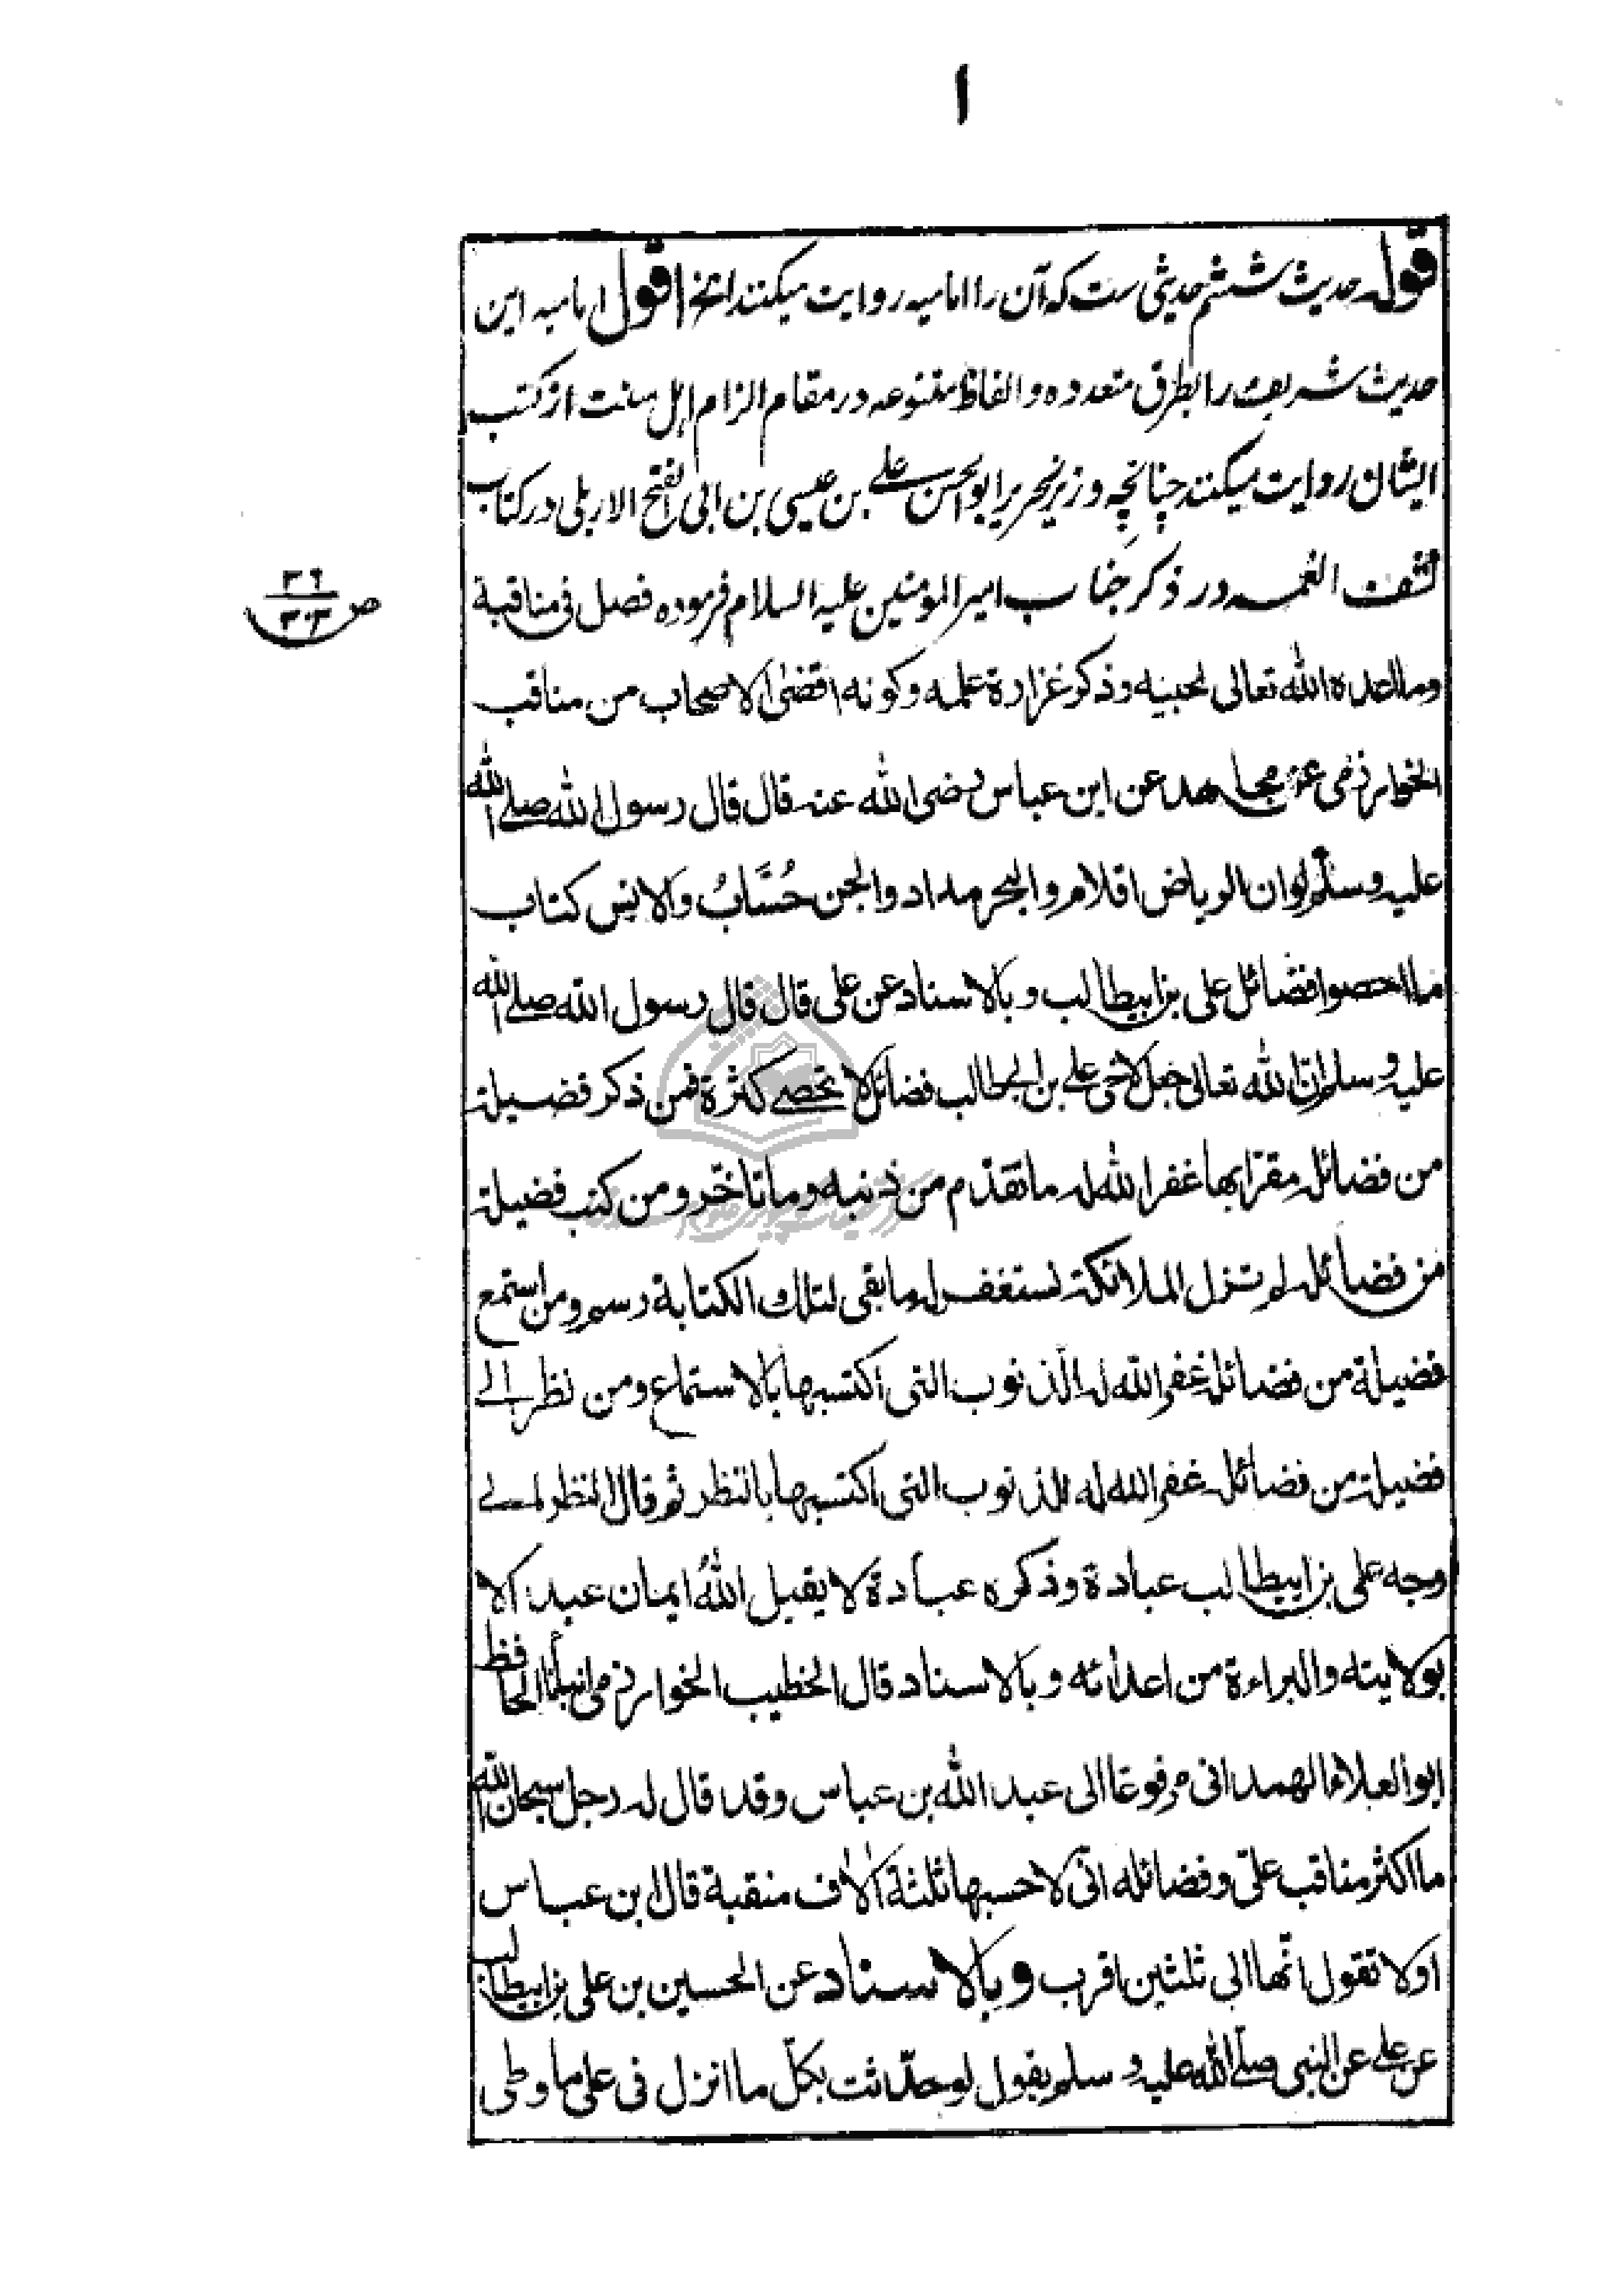 ا
قوله حدیث ششم حدیثی ست که آن را امامیه روایت میکنند انخ اقول امامیه این
حدیث شریف را بطرق متعدده و الفاظ متنوعه در مقام الزام اهل سنت از کتب
ایشان روایت میکنند چنانچه وزیر نحریر ابو الحسن علی بن عیسی بن ابی الفتح الاربلی در کتاب
کشف الغمه در ذکر جناب امیر المؤمنین علیه السلام فرموده فصل فی مناقبة
ص ٣٦ / ٣٠٣
وما اعده الله تعالی لمحبیه وذکر غزارة علمه وکونه اقضی الاصحاب من مناقب
الخوارزمی عن مجاهد عن ابن عباس رضی الله عنه قال قال رسول الله صلی الله
علیه وسلم لو ان الریاض اقلام والبحر مداد والجن حُسَّابُ والانس کتاب
ما احصوا فضائل علی بن ابیطالب وبالاسناد عن علی قال قال رسول الله صلی الله
علیه وسلم ان الله تعالی جعل لاخی علی بن ابیطالب فضائل لا تحصی کثرة فمن ذکر فضیلة
من فضائله مقرا بها غفر الله له ما تقدّم من ذنبه وما تاخّر ومن کتب فضیلة
من فضائله لم تزل الملائکة تستغفر له ما بقی لتلك الکتابة رسم ومن استمع
فضیلة من فضائله غفر الله له الذنوب التی اکتسبها بالاستماع ومن نظر الی
فضیلة من فضائله غفر الله له الذنوب التی اکتسبها بالنظر ثم قال النظر الی
وجه علی بن ابیطالب عبادة وذکره عبادة لا یقبل اللهُ ایمان عبد الا
بولایته والبراءة من اعدائه وبالاسناد قال الخطیب الخوارزمی انبأنا الحافظ
ابو العلاء الهمدانی مرفوعا الی عبد الله بن عباس وقد قال له رجل سبحان الله
ما اکثر مناقب علیّ وفضائله انّی لاحسبها ثلثة الاف منقبة قال ابن عباس
اولا تقول انّها الی ثلثین اقرب وبالاسناد عن الحسین بن علی بن ابیطالب
عن علی عن النبی صلی الله علیه وسلم یقول لو حدّثت بکلّ ما انزل فی علی ما وطی